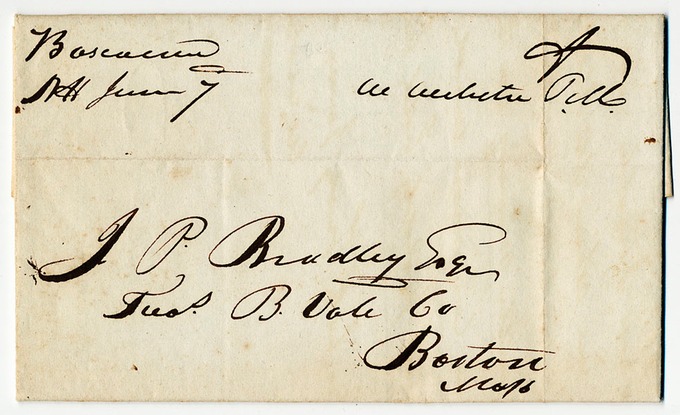 Boscawen
NH June 7
W Webster P.M.
J P. Bradley Esqr
Treas. B. Vale Co
Boston
Mass